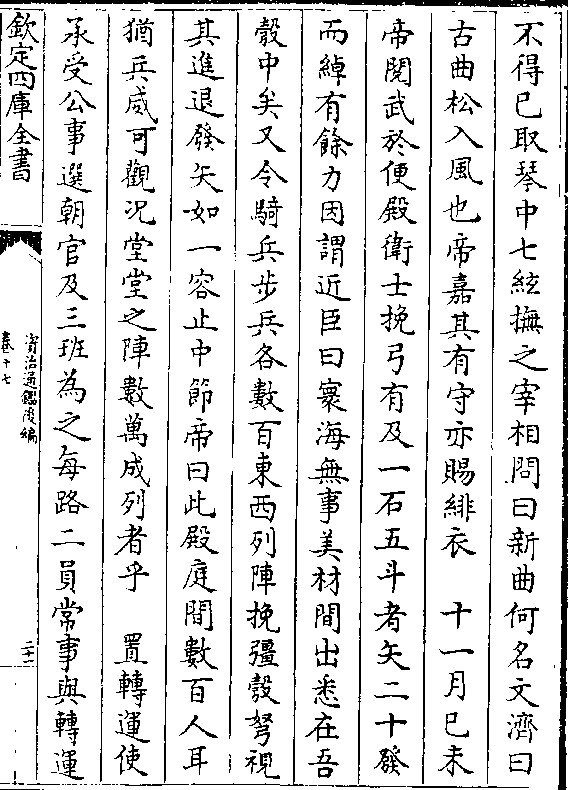 不得已取琴中七絃撫之宰相問曰新曲何名文濟曰
古曲松入風也帝嘉其有守亦賜緋衣　十一月已未
帝閱武於便殿衛士挽弓有及一石五斗者矢二十發
而綽有餘力因謂近臣曰寰海無事美材間出悉在吾
彀中矣又令騎兵步兵各數百東西列陣挽彊彀弩視
其進退發矢如一容止中節帝曰此殿庭間數百人耳
猶兵威可觀况堂堂之陣數萬成列者乎　置轉運使
承受公事選朝官及三班為之每路二員常事與轉運
欽定四庫全書
資治通鑑後編
卷十七
二十二